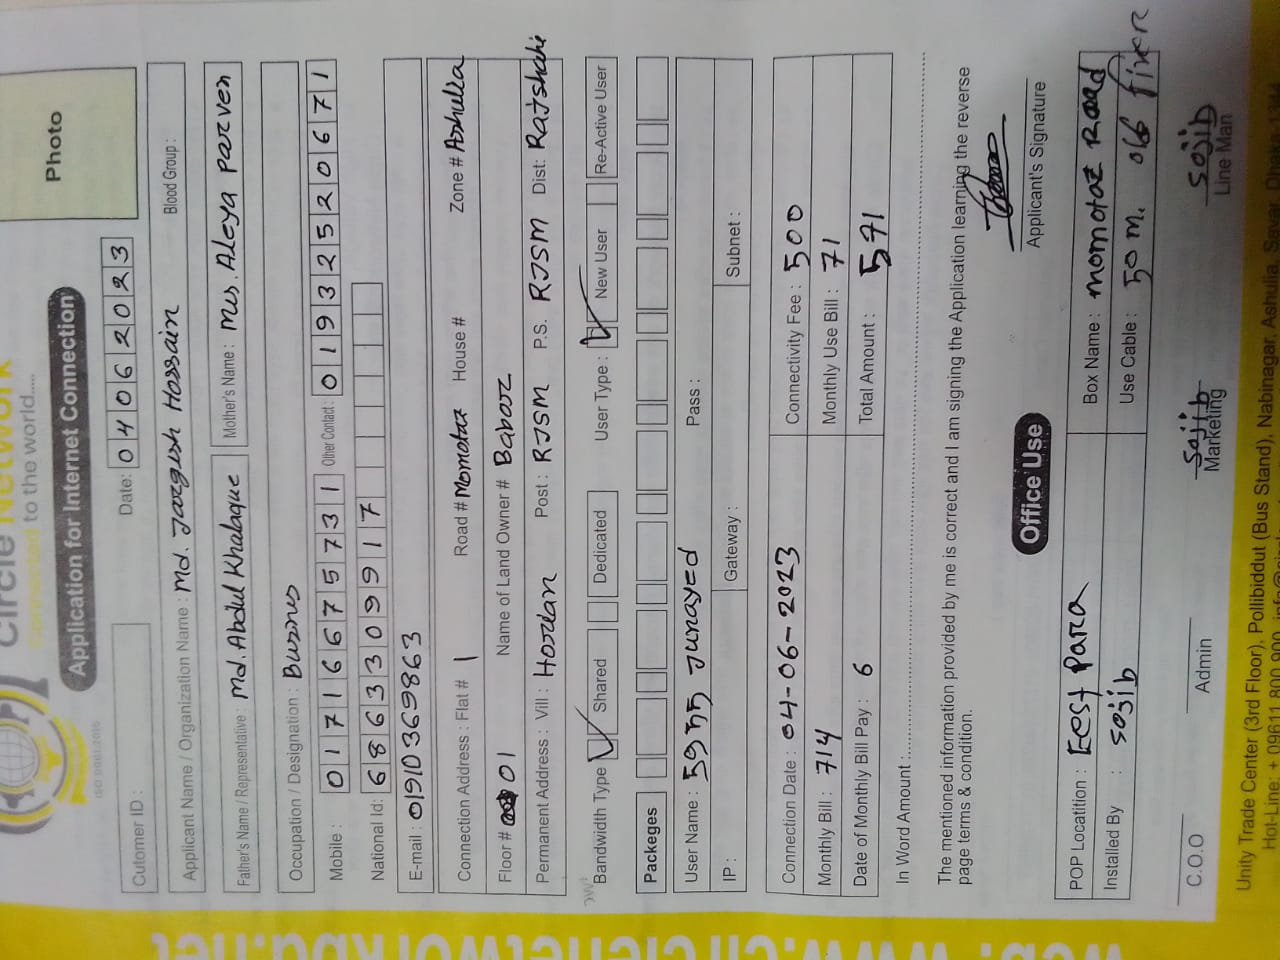 Circle Network
Connected to the world......
ISO 9001:2015
Application for Internet Connection
Photo
Cutomer ID :
Date: 04062023
Applicant Name / Organization Name : Md. Jargish Hossain Blood Group :
Father's Name / Representative : Md. Abdul Khalaque Mother's Name : Mrs. Aleya Parven
Occupation / Designation :
Mobile : 01716675731 Other Contact : 01932520671
National Id: 6863309917
E-mail : 01910369863
Connection Address : Flat # 1 Road # Momotaz House # Zone # Ashulia
Floor # 01 Name of Land Owner #
Permanent Address : Vill : Post : RJSM P.S. RJSM Dist: Rajshahi
Bandwidth Type Shared Dedicated User Type : New User Re-Active User
Packeges
User Name : Junayed Pass :
IP : Gateway : Subnet :
Connection Date : 04-06-2023 Connectivity Fee : 500
Monthly Bill : 714 Monthly Use Bill : 71
Date of Monthly Bill Pay : 6 Total Amount : 571
In Word Amount :
The mentioned information provided by me is correct and I am signing the Application learning the reverse
page terms & condition.
Applicant's Signature
Office Use
POP Locatition : Eest Para Box Name : momotaz Road
Installed By : sojib Use Cable : 50 m.
sojib sojib
C.O.O Admin Marketing Line Man
Unity Trade Center (3rd Floor), Pollibiddut (Bus Stand), Nabinagar, Ashulia, Savar, Dhaka
Hot-Line: + 09611 800 900